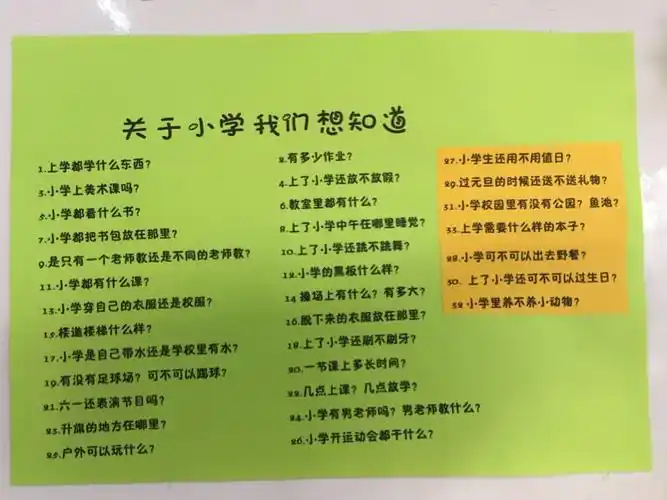 关于小学我们想知道
1.上学都学什么东西?
3.小学上美术课吗?
5.小学都看什么书?
7.小学都把书包放在那里?
9.是只有一个老师教还是不同的老师教?
11.小学都有什么课?
13.小学穿自己的衣服还是校服?
15.楼道楼梯什么样?
17.小学是自己带水还是学校里有水?
19.有没有足球场?可不可以踢球?
21.六一还表演节目吗?
23.升旗的地方在哪里?
25.户外可以玩什么?
2.有多少作业?
4.上了小学还放不放假?
6.教室里都有什么?
8.上了小学中午在哪里睡觉?
10.上了小学还跳不跳舞?
12.小学的黑板什么样?
14 操场上有什么?有多大?
16.脱下来的衣服放在那里?
18.上了小学还刷不刷牙?
20.一节课上多长时间?
22.几点上课?几点放学?
24.小学有男老师吗?男老师教什么?
26.小学开运动会都干什么?
27.小学生还用不用值日?
29.过元旦的时候还送不送礼物?
31.小学校园里有没有公园?鱼池?
33.上学需要什么样的本子?
28.小学可不可以出去野餐?
30. 上了小学还可不可以过生日?
32 小学里养不养小动物?